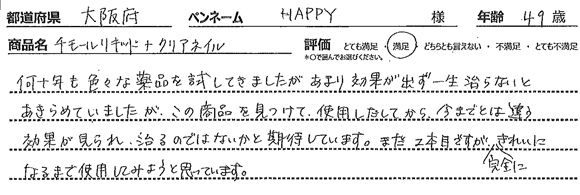 都道府県 大阪府 ペンネーム HAPPY 様 年齢 49歳
商品名 チモールリキッド+クリアネイル 評価 とても満足・満足・どちらとも言えない・不満足・とても不満足
*○で囲んでお選びください。
何十年も色々な薬品を試してきましたがあまり効果が出ず一生治らないと
あきらめていましたが、この商品を見つけて、使用しだしてから、今までとは違う
効果が見られ、治るのではないかと期待しています。まだ2本目ですが、きれいに
完全に
なるまで使用してみようと思っています。